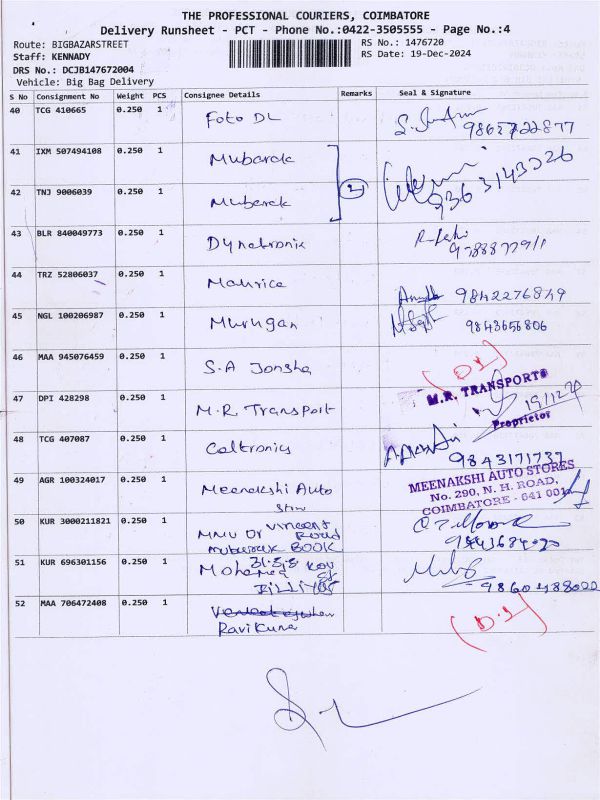 THE PROFESSIONAL COURIERS, COIMBATORE
Delivery Runsheet - PCT - Phone No.:0422-3505555 - Page No.:4
Route: BIGBAZARSTREET
RS No.: 1476720
Staff: KENNADY
RS Date: 19-Dec-2024
DRS No.: DCJB147672004
Vehicle: Big Bag Delivery
S No Consignment No Weight PCS Consignee Details Remarks Seal & Signature
40 TCG 410665 0.250 1 Foto DL
41 IXM 507494108 0.250 1 Mubarak
936 3143026
42 TNJ 9006039 0.250 1 Mubarak 2
43 BLR 840049773 0.250 1 Dynatronix
44 TRZ 52806037 0.250 1 Maurice 9842276849
45 NGL 100206987 0.250 1 Murugan 9843656806
46 MAA 945076459 0.250 1 S.A Jonsha
M.R. TRANSPORTS
47 DPI 428298 0.250 1 M.R. Transport 19/12/24
Proprietor
48 TCG 407087 0.250 1 Caltronics 9843171737
49 AGR 100324017 0.250 1 Meenakshi Auto
MEENAKSHI AUTO STORES
No. 290, N. H. ROAD,
COIMBATORE - 641 001
50 KUR 3000211821 0.250 1 Vincent
Road
BOOK
51 KUR 696301156 0.250 1 Mohamed
52 MAA 706472408 0.250 1
Ravikuna (D.L)